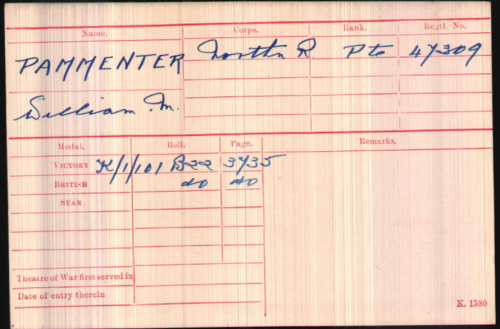 Name. Corps. Rank. Regtl. No.
PAMMENTER Northn R. Pte 47309
William M.
Medal. Roll. Page. Remarks.
VICTORY K/1/101 B22 3735
BRITISH do do
STAR
Theatre of War first served in
Date of entry therein
K. 1380